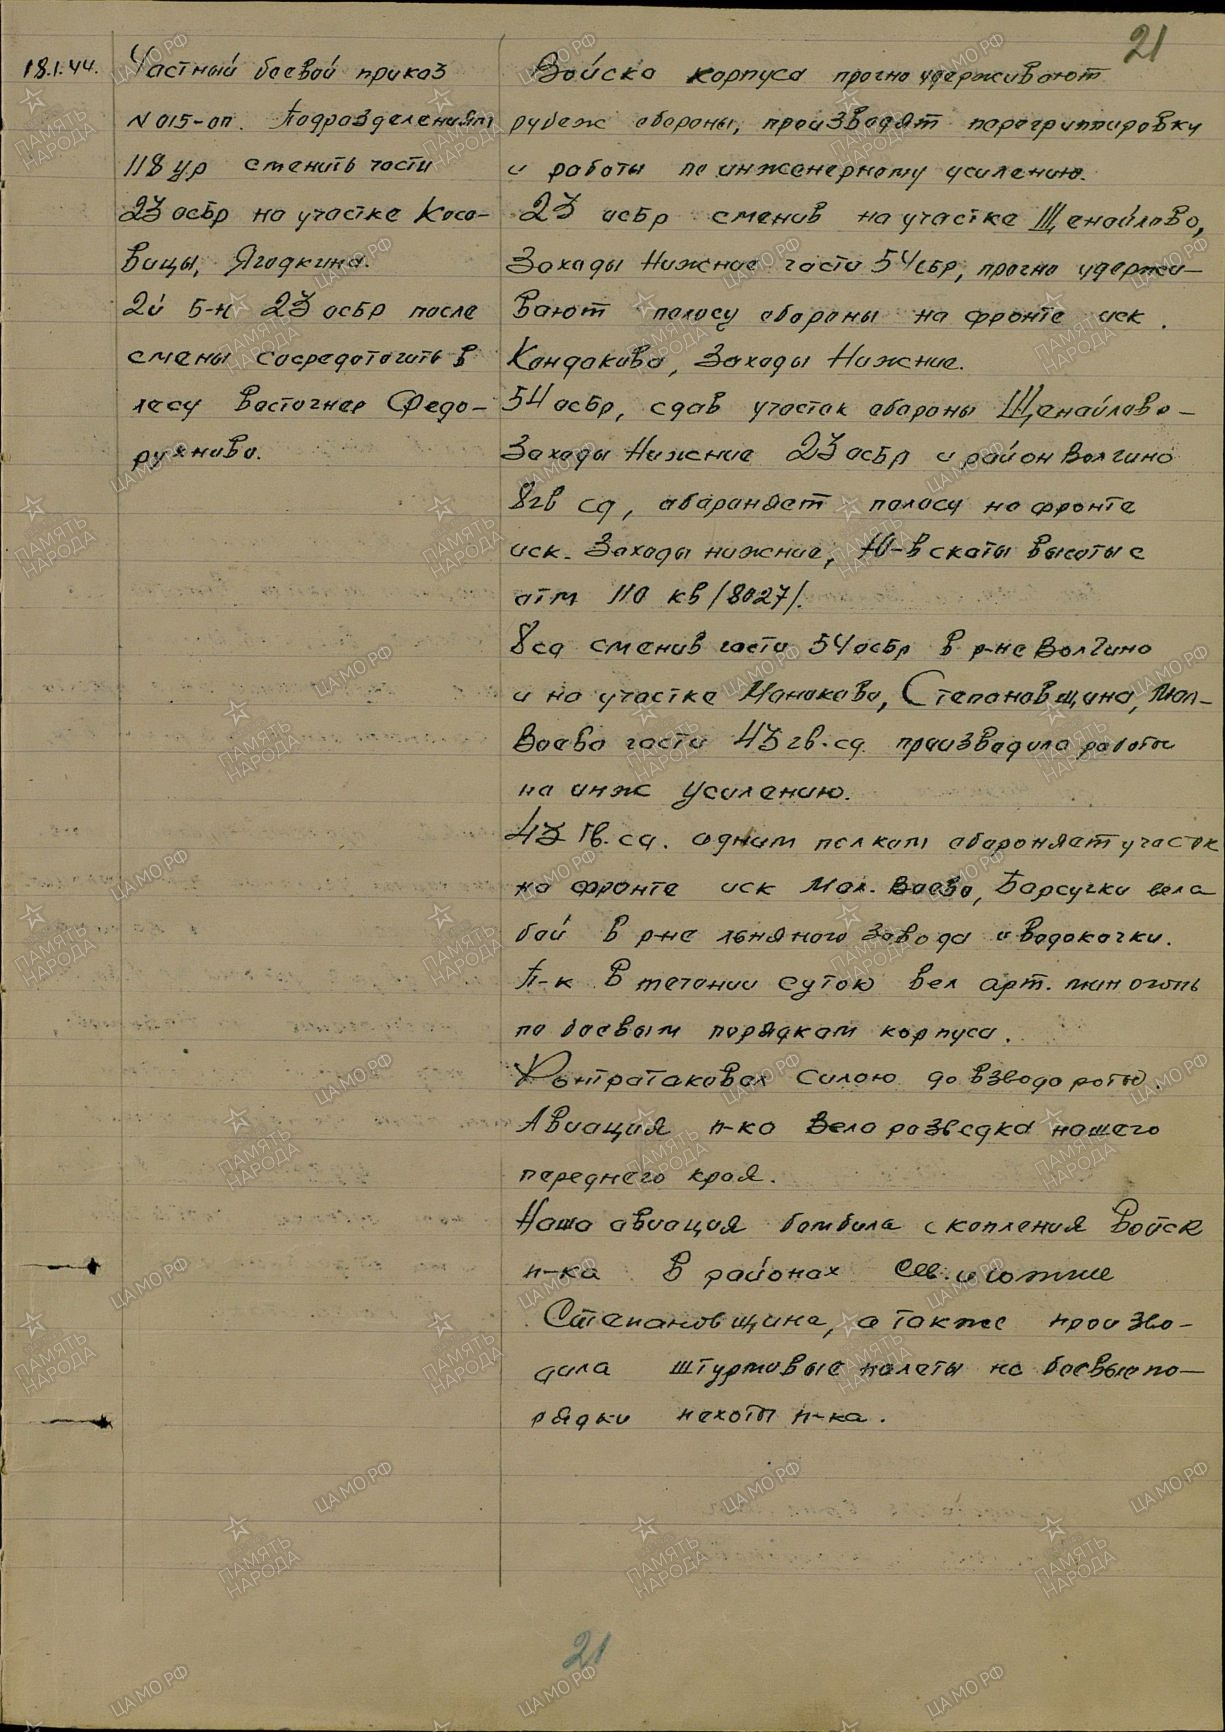 21
18.1.44.
Частный боевой приказ
N 015-оп. Подразделениям
118 ур сменить части
23 осбр на участке Косо-
вицы, Ягодкина.
2й б-н 23 осбр после
смены сосредоточить в
лесу восточнее Федо-
рухново.
Войска корпуса прочно удерживают
рубеж обороны, производят перегруппировку
и работы по инженерному усилению.
23 осбр сменив на участке Щенайлово,
Заходы Нижние части 54 сбр, прочно удержи-
вают полосу обороны на фронте иск.
Кондаково, Заходы Нижние.
54 осбр, сдав участок обороны Щенайлово-
Заходы Нижние 23 осбр и район Волгино
8гв сд, обороняет полосу на фронте
иск. Заходы нижние, Ю-В скаты высоты с
отм 110 кв /8027/.
8сд сменив части 54 осбр в р-не Волгино
и на участке Манаково, Степановщина, Мал-
Воево части 43 гв. сд. производила работы
по инж усилению.
43 Гв. сд. одним полком обороняет участок
на фронте иск Мал. Воево, Барсучки вела
бой в р-не льняного завода и водокачки.
П-к в течении суток вел арт. мин огонь
по боевым порядкам корпуса.
Контратаковал силою до взвода роты.
Авиация п-ка вела разведка нашего
переднего края.
Наша авиация бомбила скопления войск
п-ка в районах сев. и южнее
Степановщина, а также произво-
дила штурмовые налеты на боевые по-
рядки пехоты п-ка.
21